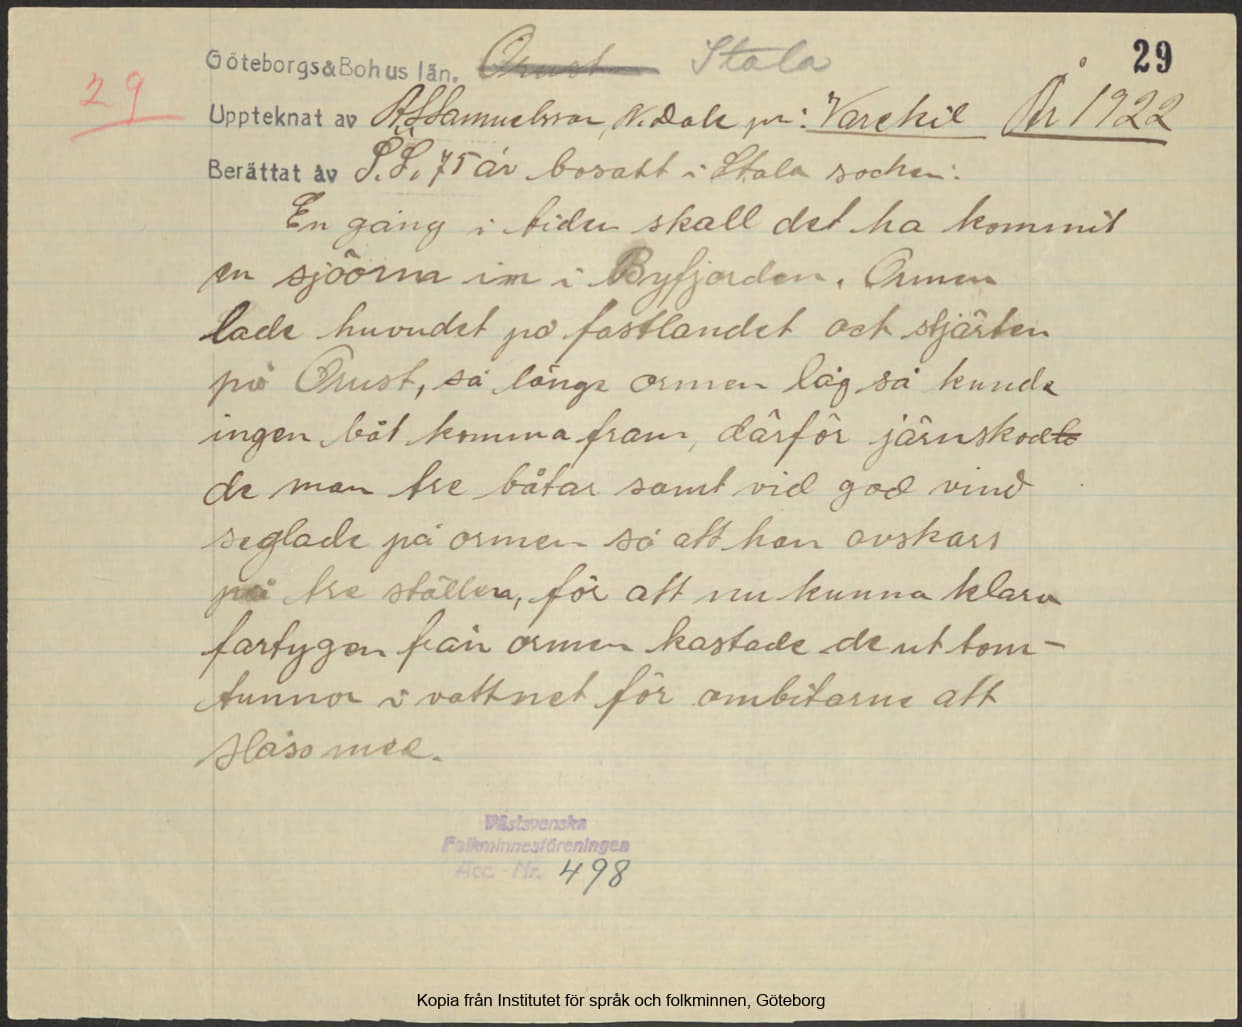 29
Göteborgs&Bohus län. Orust Stala
29
Uppteknat av A.S. Samuelsson, N. Dale pr: Varekil År 1922
Berättat av P.S. 75 år bosatt i Stala socken:
En gång i tiden skall det ha kommit
en sjöorm in i Byfjorden. Ormen
lade huvudet på fastlandet och stjärten
på Orust, så länge ormen låg så kunde
ingen båt komma fram, därför järnskodde
de man tre båtar samt vid god vind
seglade på ormen så att han avskars
på tre ställen, för att nu kunna klara
fartygen från ormen kastade de ut tom-
tunnor i vattnet för ormbitarne att
slåss med.
Västsvenska
Folkminnesföreningen
Acc. Nr. 498
Kopia från Institutet för språk och folkminnen, Göteborg